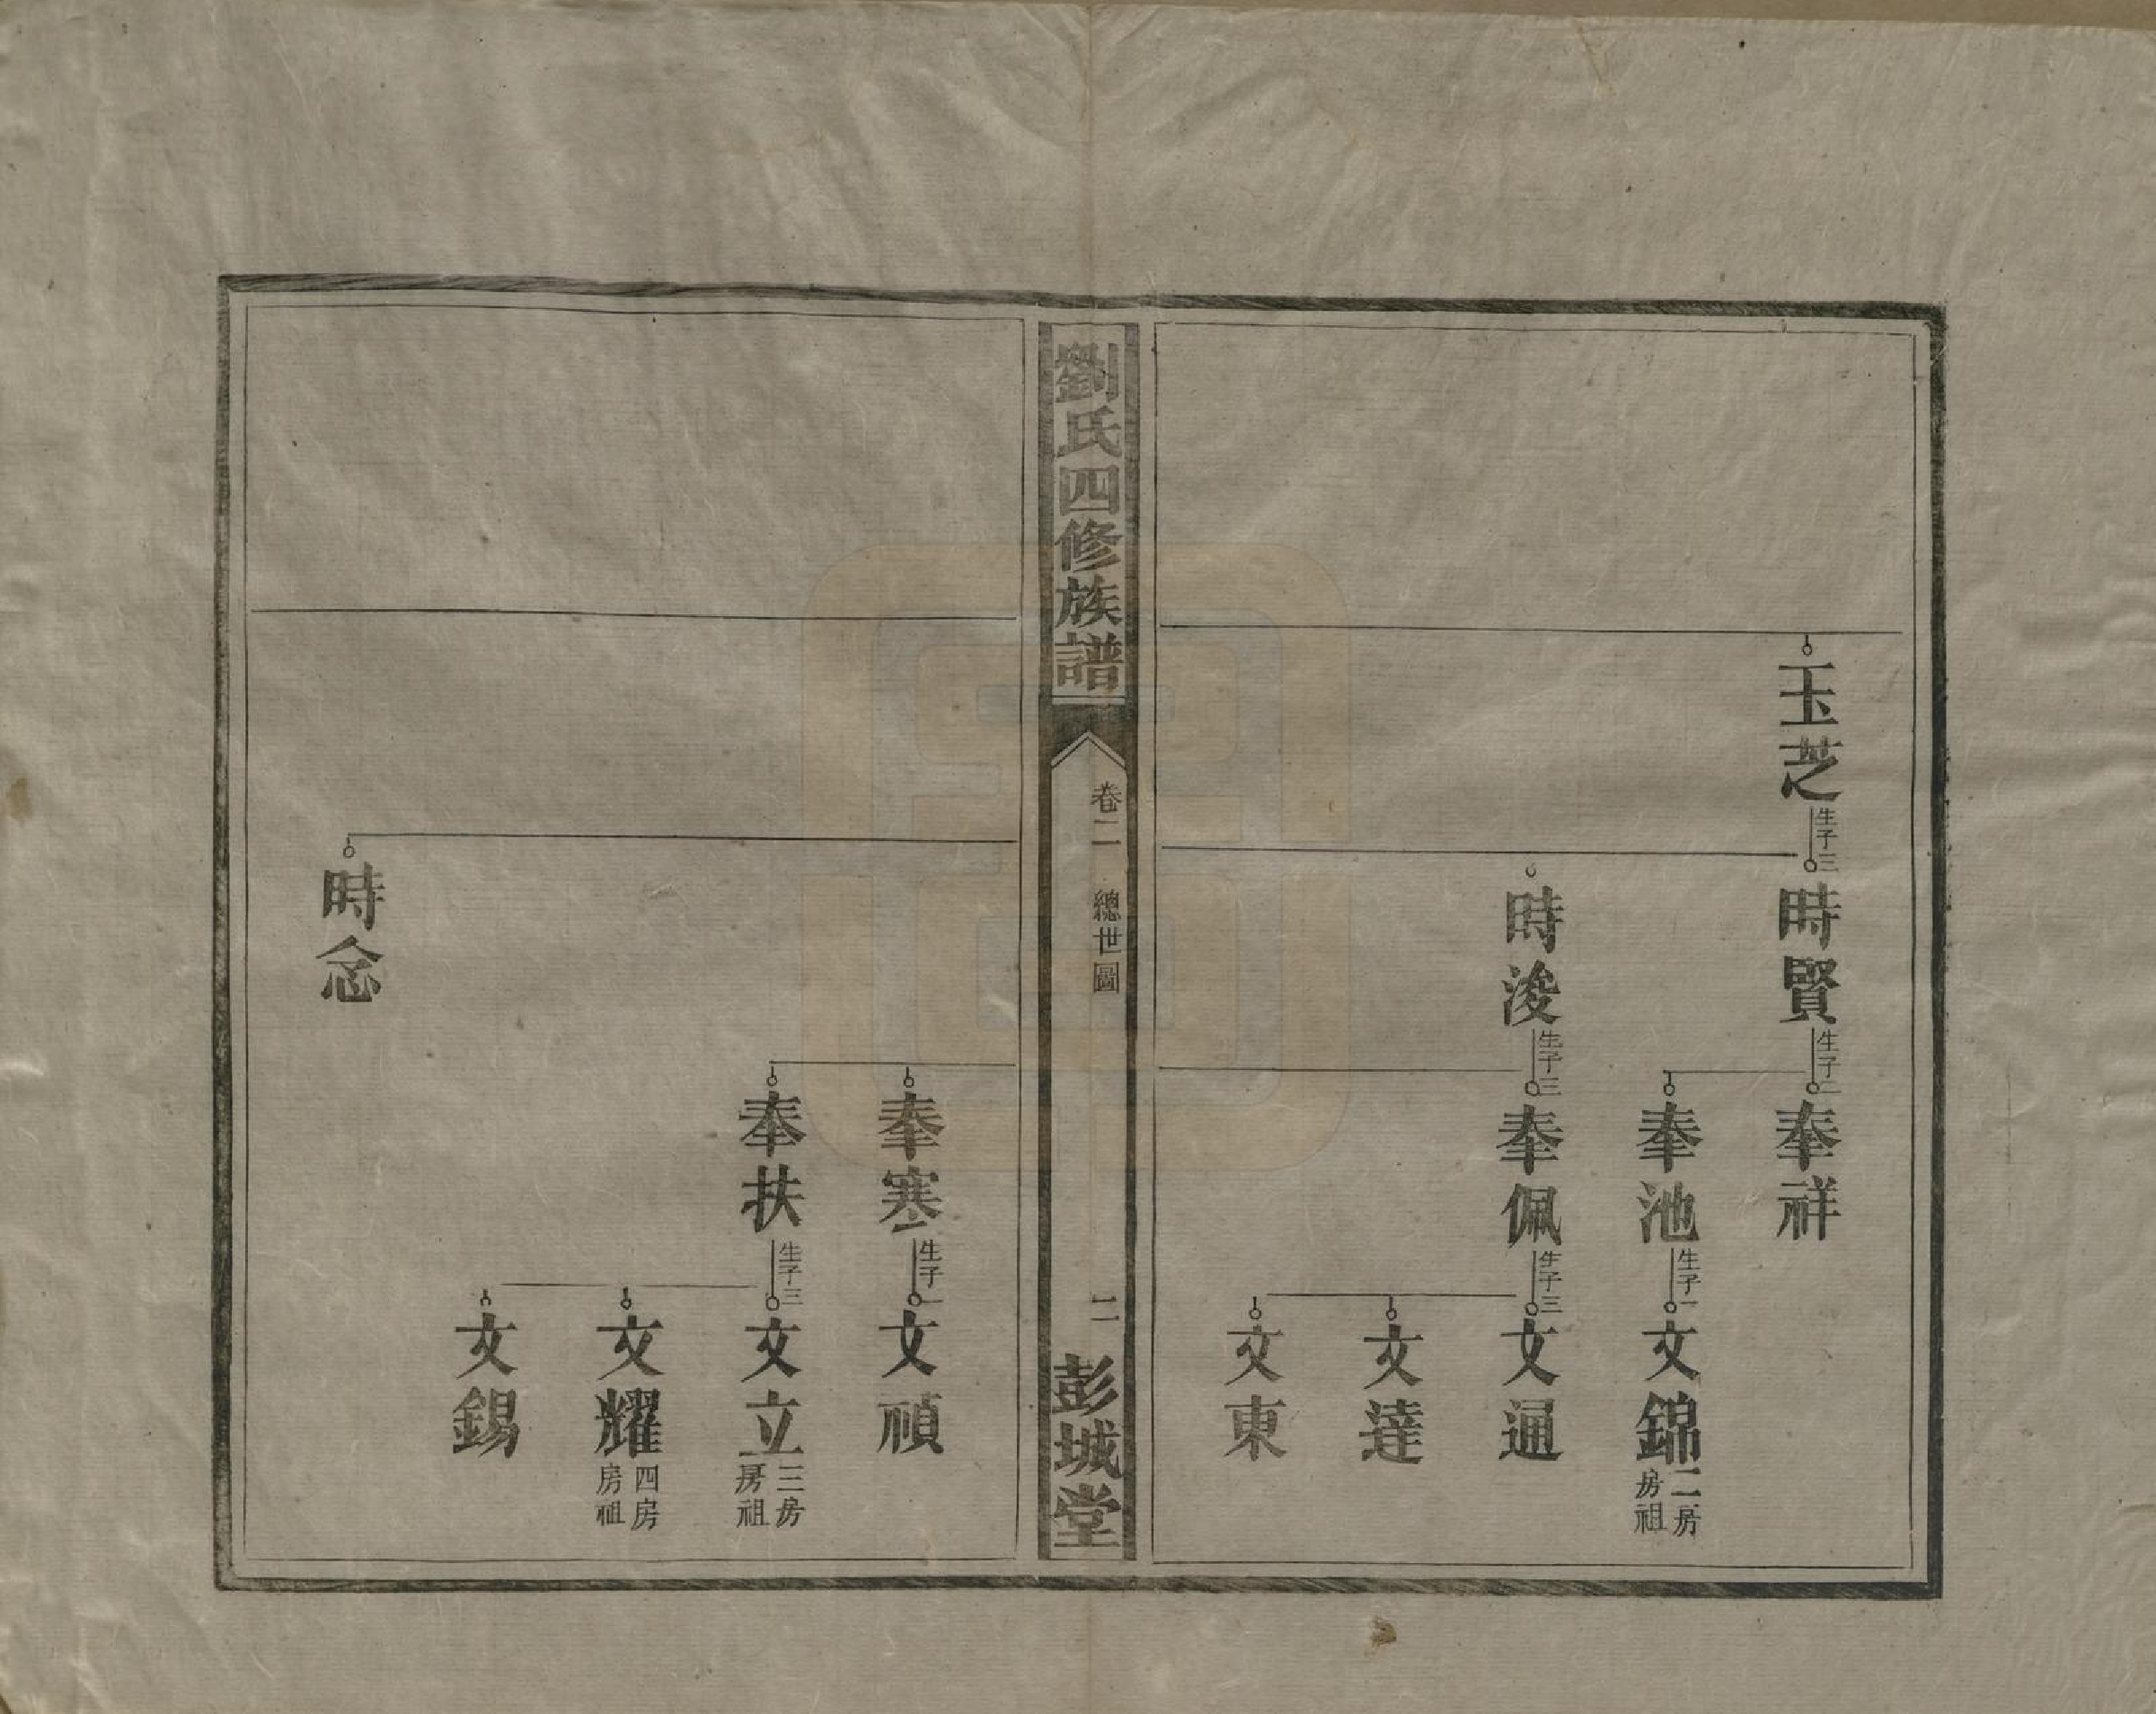 玉芝
生子三
時賢
生子二
奉祥
奉池
生子一
文錦
二房
房祖
時浚
生子三
奉佩
生子三
文通
文達
文東
劉氏四修族譜
卷二
總世圖
二
彭城堂
奉寒
生子一
文禎
奉扶
生子三
文立
三房
房祖
文耀
四房
房祖
文錫
時念